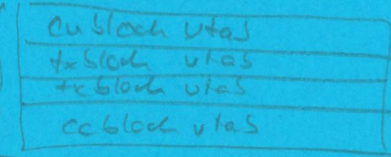 cublock vtas
txblock vtas
txblock vtas
ccblock vtas